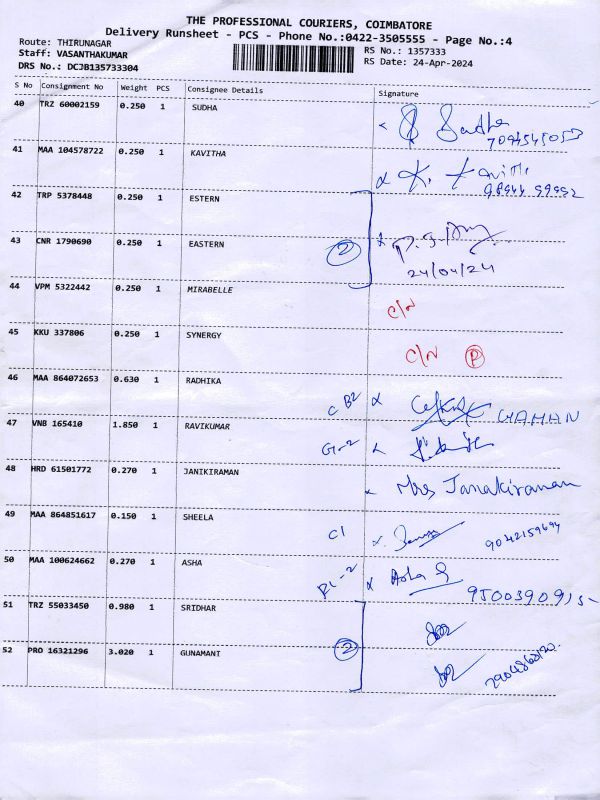 THE PROFESSIONAL COURIERS, COIMBATORE
Delivery Runsheet - PCS - Phone No.:0422-3505555 - Page No.:4
Route: THIRUNAGAR RS No.: 1357333
Staff: VASANTHAKUMAR RS Date: 24-Apr-2024
DRS No.: DCJB135733304
S No Consignment No Weight PCS Consignee Details Signature
40 TRZ 60002159 0.250 1 SUDHA Sudha
41 MAA 104578722 0.250 1 KAVITHA K.
42 TRP 5378448 0.250 1 ESTERN
43 CNR 1790690 0.250 1 EASTERN 2
24/04/24
44 VPM 5322442 0.250 1 MIRABELLE C/N
45 KKU 337806 0.250 1 SYNERGY C/N P
46 MAA 864072653 0.630 1 RADHIKA C B2
47 VNB 165410 1.850 1 RAVIKUMAR G1-2
48 HRD 61501772 0.270 1 JANIKIRAMAN Mrs Janakiraman
49 MAA 864851617 0.150 1 SHEELA C1 9042159694
50 MAA 100624662 0.270 1 ASHA Asha S
9500390915
51 TRZ 55033450 0.980 1 SRIDHAR
52 PRO 16321296 3.020 1 GUNAMANI 2